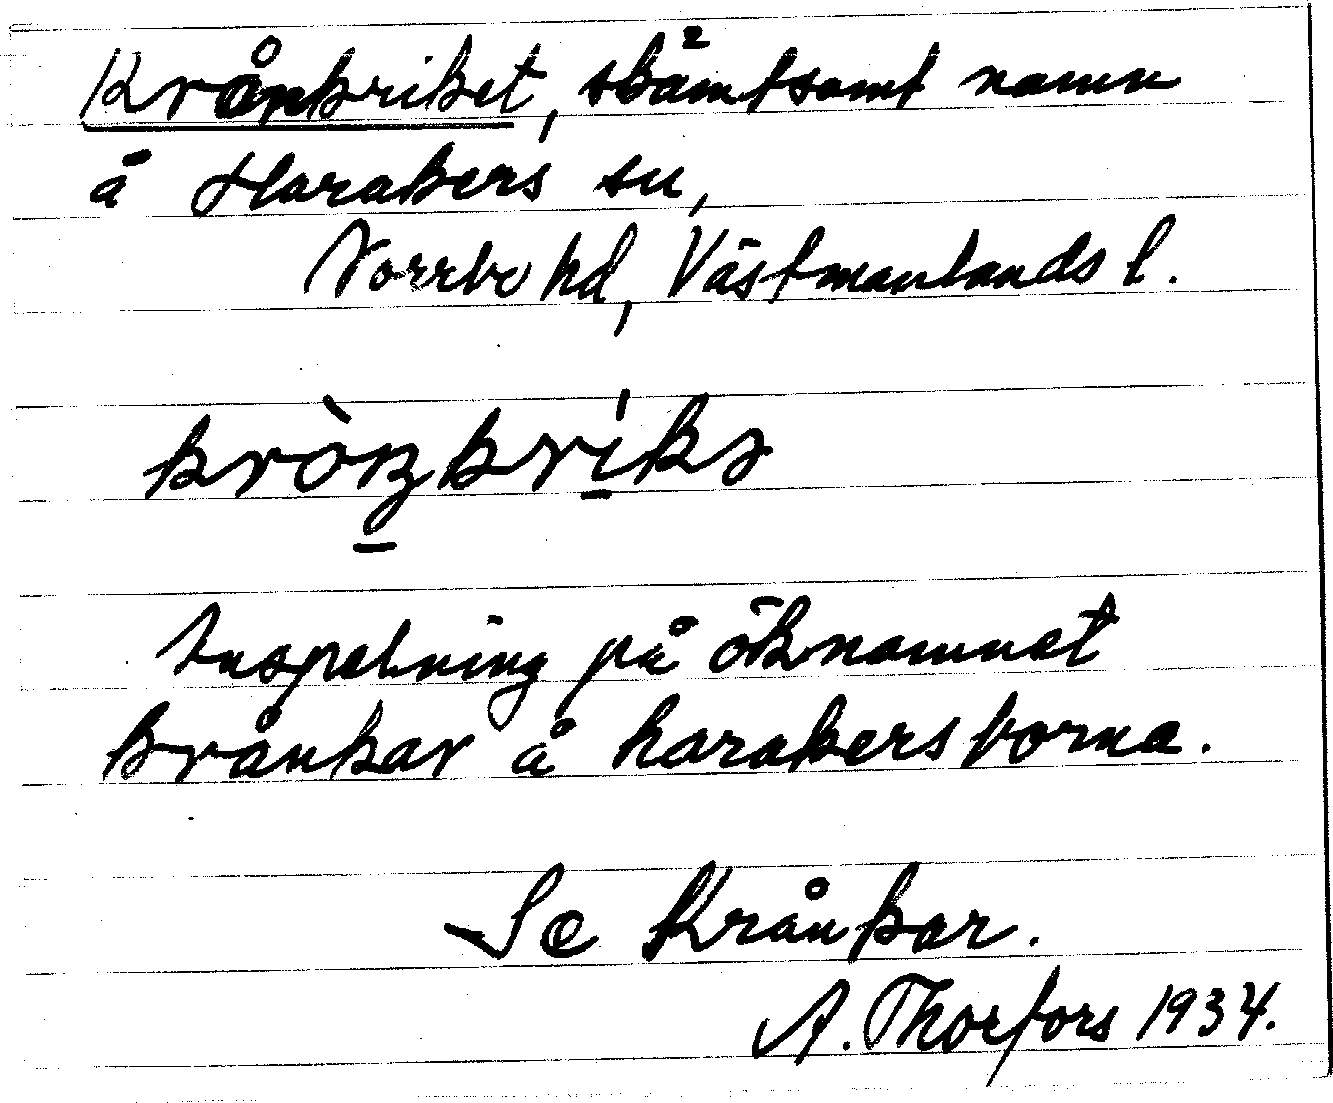 Krånkriket, skämtsamt namn
å Harakers sn,
Norrbo hd, Västmanlands l.
Anspelning på öknamnet
krånkar å harakersborna.
Se Krånkar.
A. Thorfors 1934.